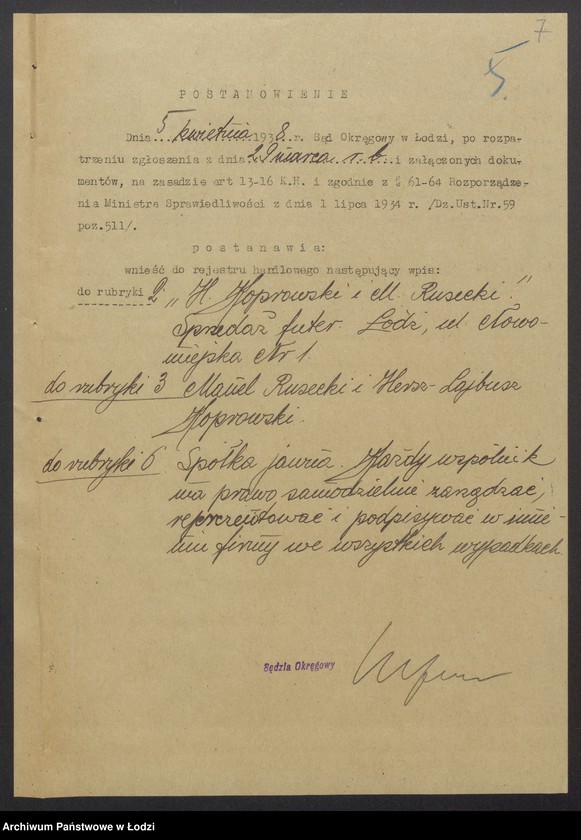 7
5.
POSTANOWIENIE
Dnia 5 kwietnia 1938 r. Sąd Okręgowy w Łodzi, po rozpa-
trzeniu zgłoszenia z dnia 29 marca r. b. i załączonych doku-
mentów, na zasadzie art 13-16 K.H. i zgodnie z § 61-64 Rozporządze-
nia Ministra Sprawiedliwości z dnia 1 lipca 1934 r. /Dz.Ust.Nr.59
poz.511/.
postanawia:
wnieść do rejestru handlowego następujący wpis:
do rubryki 2 „H. Koprowski i M. Rusecki."
Sprzedaż futer. Łódź, ul. Nowo-
miejska Nr 1.
do rubryki 3 Manel Rusecki i Hersz-Lajbusz
Koprowski.
do rubryki 6 Spółka jawna. Każdy wspólnik
ma prawo samodzielnie zarządzać,
reprezentować i podpisywać w imie-
niu firmy we wszystkich wypadkach.
Sędzia Okręgowy
Archiwum Państwowe w Łodzi